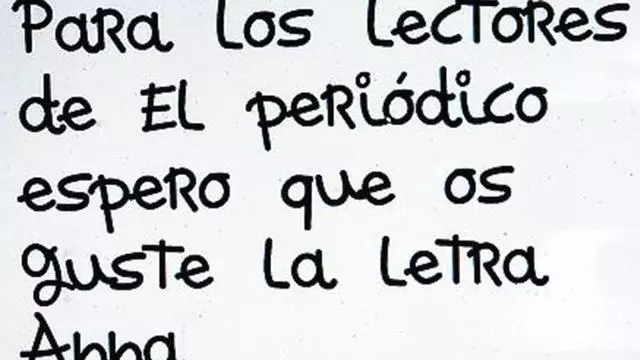 Para los lectores
de El periódico
espero que os
guste la letra
Anna